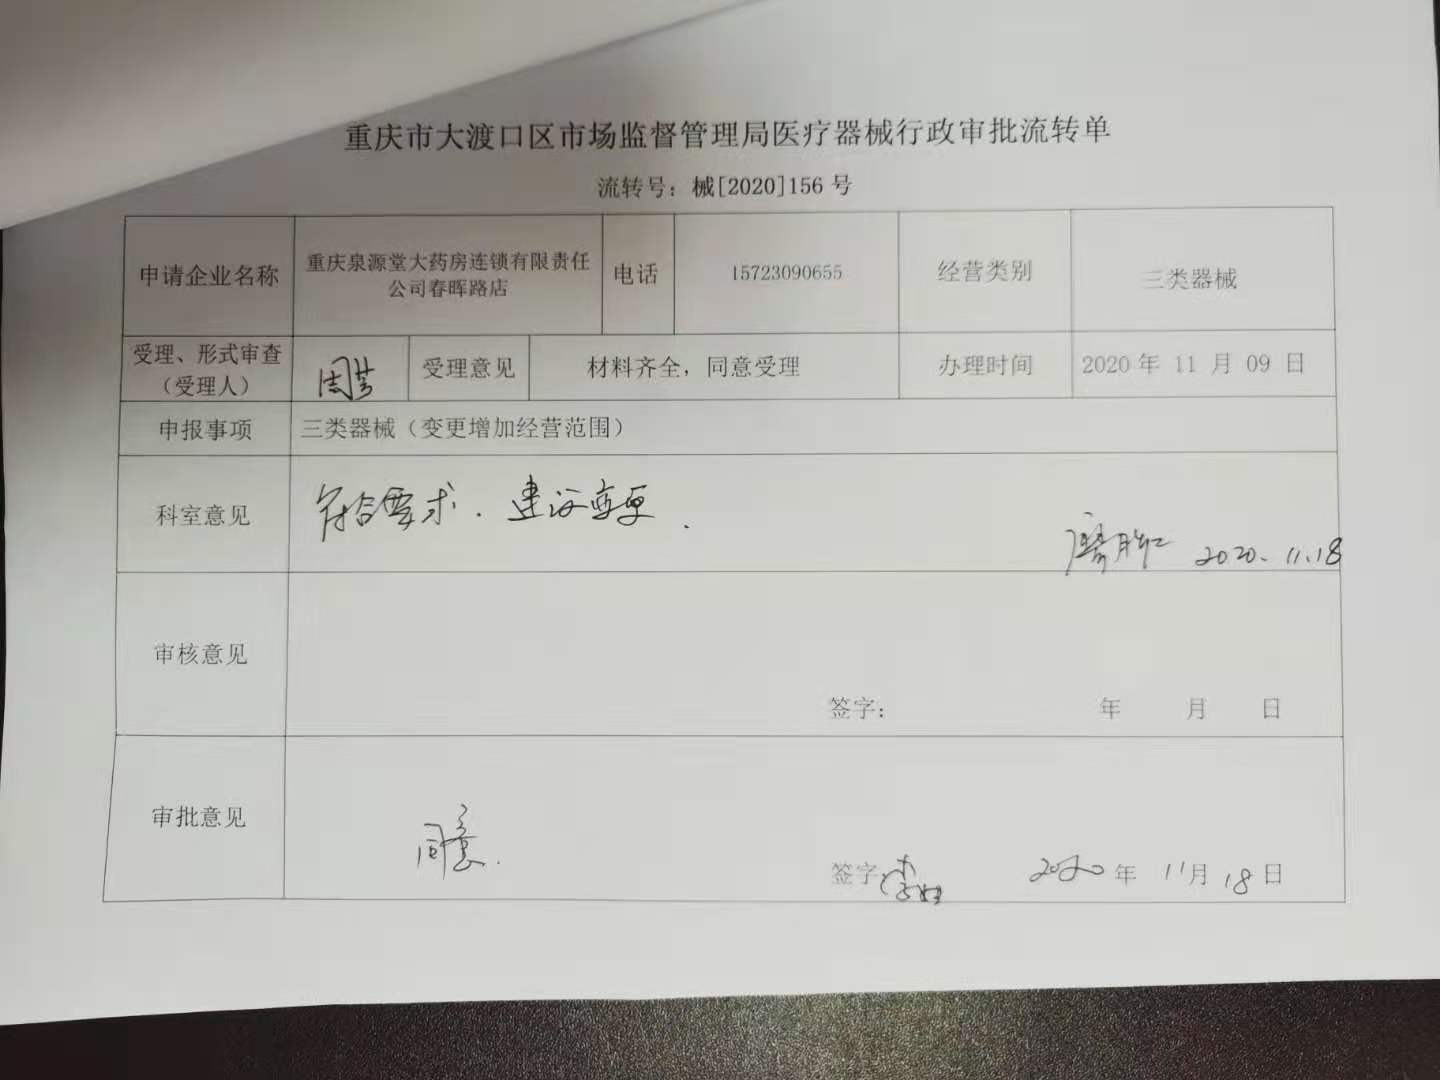 重庆市大渡口区市场监督管理局医疗器械行政审批流转单
流转号：械[2020]156 号
申请企业名称
重庆泉源堂大药房连锁有限责任
公司春晖路店
电话
15723090655
经营类别
三类器械
受理、形式审查
（受理人）
受理意见
材料齐全，同意受理
办理时间
2020 年 11 月 09 日
申报事项
三类器械（变更增加经营范围）
科室意见
符合要求．建议变更．
2020.11.18
审核意见
签字： 年 月 日
审批意见
同意．
签字 2020 年 11 月 18 日